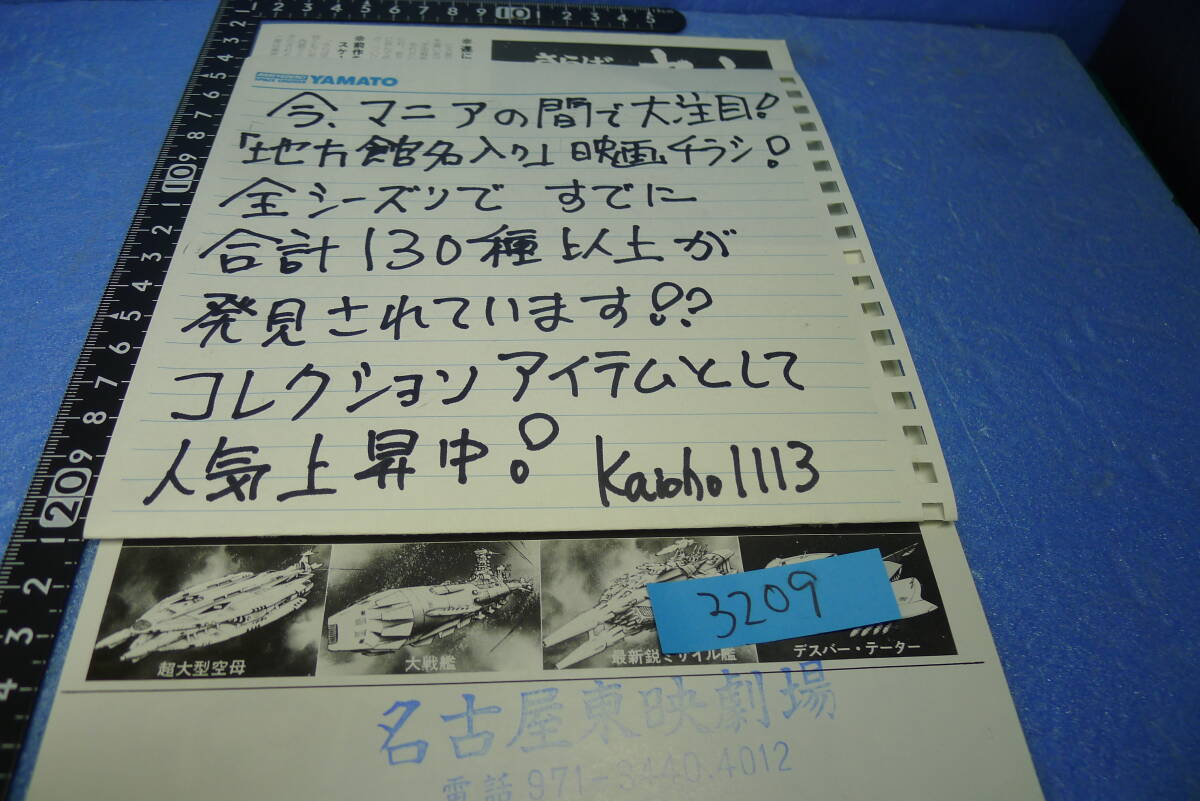 さらば
YAMATO
今、マニアの間で大注目!
「地方館名入り」映画チラシ!
全シーズンで すでに
合計130種以上が
発見されています!??
コレクションアイテムとして
人気上昇中! Kaioh01113
3209
超大型空母
大戦艦
最新鋭ミサイル艦
デスバー・テーター
名古屋東映劇場
電話 971-3440.4012